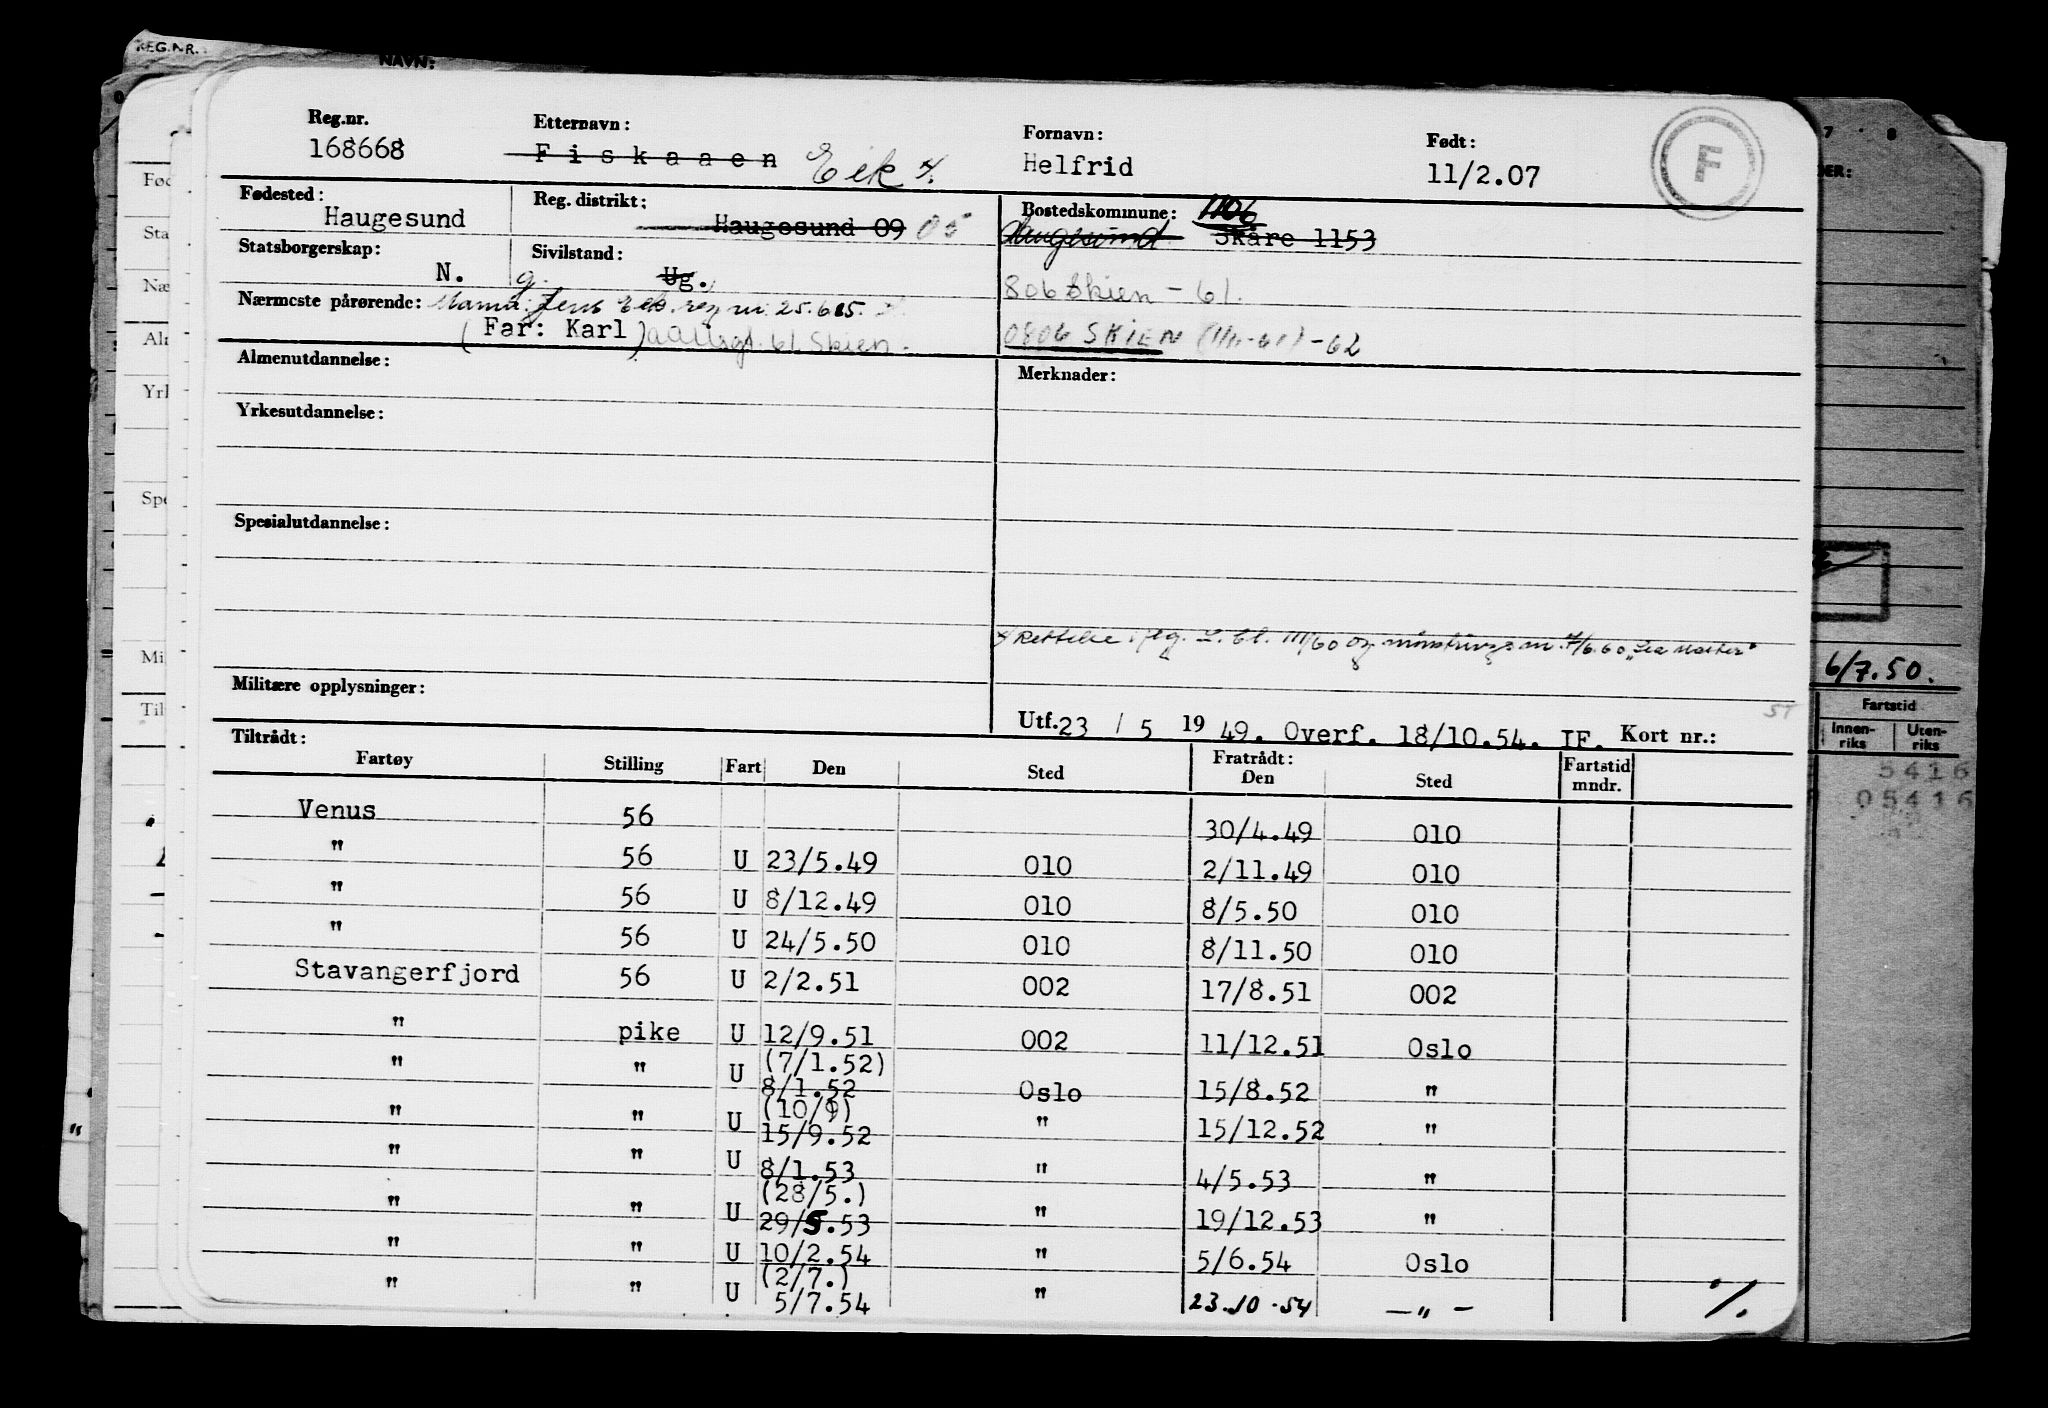 REG.NR.
NAVN:
Reg.nr. Etternavn: Fornavn: Født:
168668 Fiskaaen Eek x/. Helfrid 11/2.07 F
Fødested: Reg. distrikt: Bostedskommune: 1106
Haugesund Haugesund 09 05 Haugesund Skåre 1153
Statsborgerskap: Sivilstand:
N. g. Ug. 806 Skien - 61.
Nærmeste pårørende: Mann: Jens Eek. reg nr. 25.615.
(Far: Karl) Skien. 0806 SKIEN -62
Almenutdannelse: Merknader:
Yrkesutdannelse:
Spesialutdannelse:
x/ Rettelse iflg. L. bl. 111/60 og mønstringsm. 7/6.60 „Sea Master"
6/7.50.
Militære opplysninger:
Utf. 23 / 5 19 49. Overf. 18/10.54. IF. Kort nr.: ST
Tiltrådt: Fratrådt:
Fartøy Stilling Fart Den Sted Den Sted Fartstid mndr.
Fartstid
Innenriks Utenriks
5416
05416
Venus 56 30/4.49 010
" 56 U 23/5.49 010 2/11.49 010
" 56 U 8/12.49 010 8/5.50 010
" 56 U 24/5.50 010 8/11.50 010
Stavangerfjord 56 U 2/2.51 002 17/8.51 002
" pike U 12/9.51 002 11/12.51 Oslo
" " U (7/1.52) 8/1.52 Oslo 15/8.52 "
" " U (10/9) 15/9.52 " 15/12.52 "
" " U 8/1.53 " 4/5.53 "
" " U (28/5.) 29/5.53 " 19/12.53 "
" " U 10/2.54 " 5/6.54 Oslo
" " U (2/7.) 5/7.54 " 23.10.54 — " —
./.